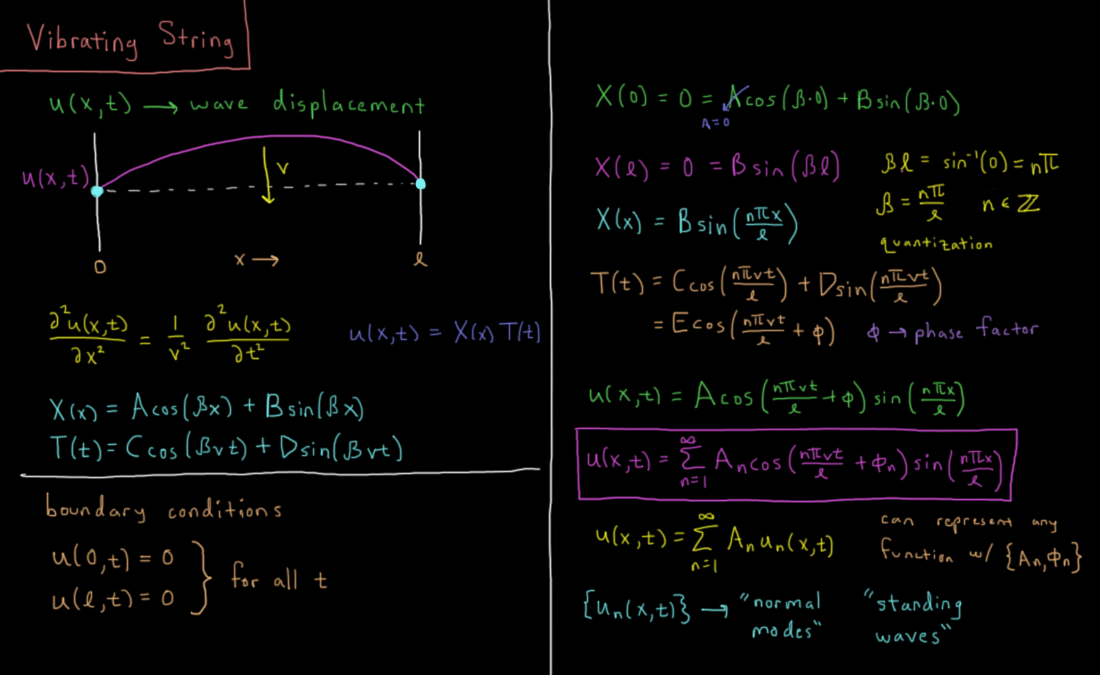 Vibrating String
u(x,t) → wave displacement
u(x,t)
v
0
x →
ℓ
∂²u(x,t)/∂x² = 1/v² ∂²u(x,t)/∂t²
u(x,t) = X(x) T(t)
X(x) = A cos(βx) + B sin(βx)
T(t) = C cos(βvt) + D sin(βvt)
boundary conditions
u(0,t) = 0
u(ℓ,t) = 0
} for all t
X(0) = 0 = A cos(β·0) + B sin(β·0)
A=0
X(ℓ) = 0 = B sin(βℓ)
βℓ = sin⁻¹(0) = nπ
β = nπ/ℓ n ∈ ℤ
quantization
X(x) = B sin(nπx/ℓ)
T(t) = C cos(nπvt/ℓ) + D sin(nπvt/ℓ)
= E cos(nπvt/ℓ + ϕ)
ϕ → phase factor
u(x,t) = A cos(nπvt/ℓ + ϕ) sin(nπx/ℓ)
u(x,t) = ∑_{n=1}^{∞} Aₙ cos(nπvt/ℓ + ϕₙ) sin(nπx/ℓ)
u(x,t) = ∑_{n=1}^{∞} Aₙ uₙ(x,t)
can represent any
function w/ {Aₙ, ϕₙ}
{uₙ(x,t)} → "normal
modes"
"standing
waves"